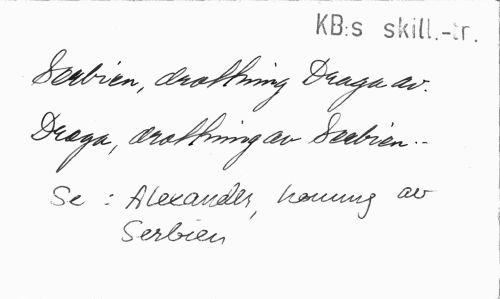 KB:s skill.-tr.
Serbien, drottning Draga av.
Draga, drottning av Serbien.-
Se : Alexander, konung av
Serbien